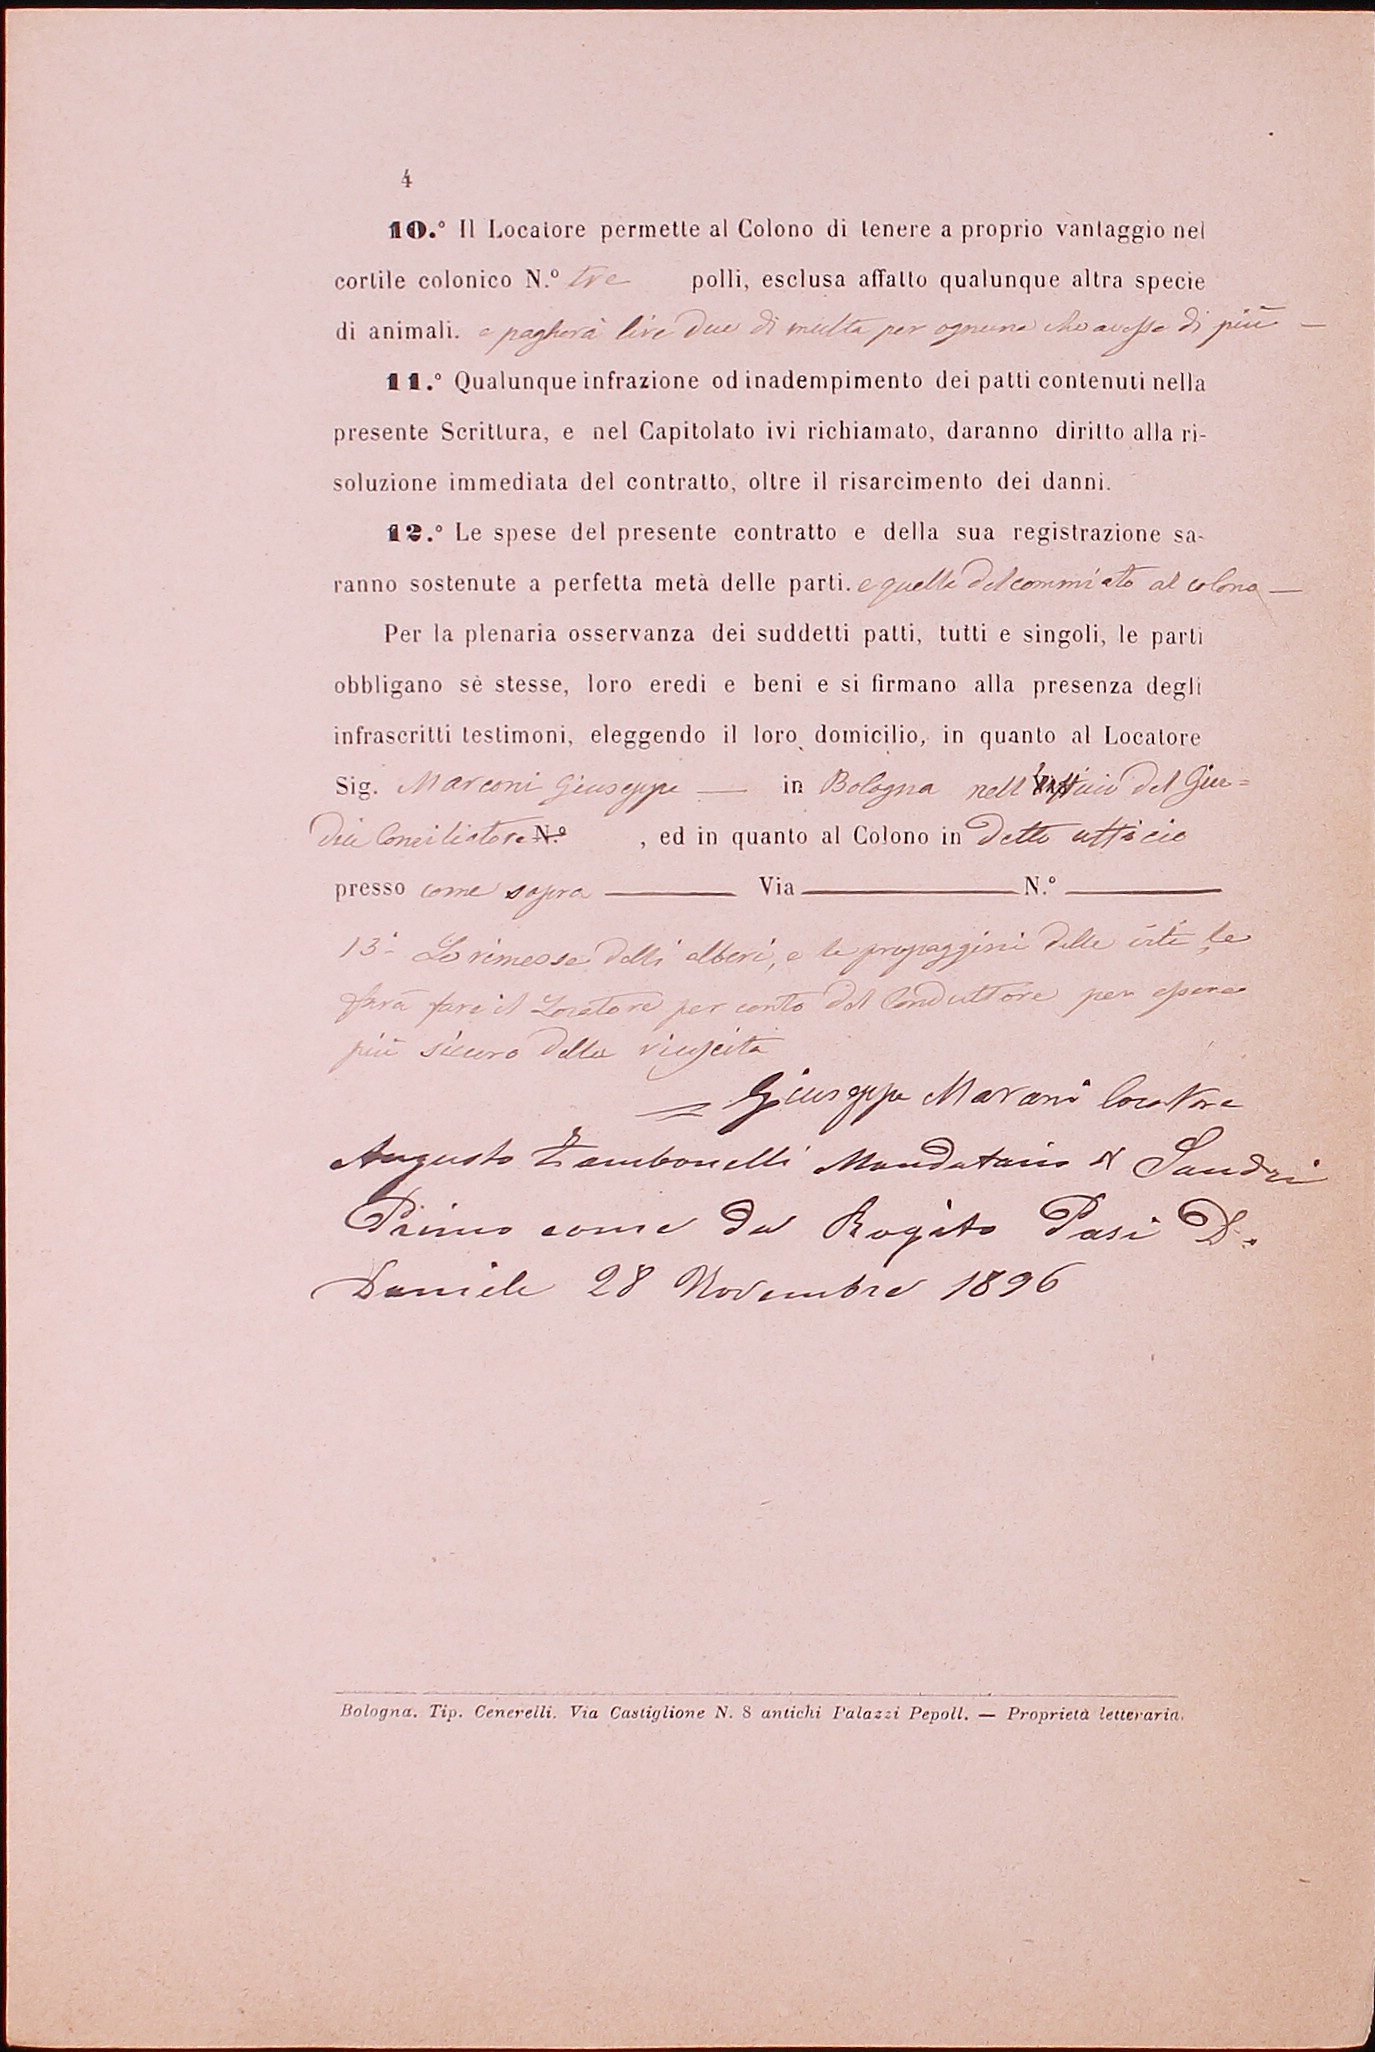 4
10.° Il Locatore permette al Colono di tenere a proprio vantaggio nel
cortile colonico N.° tre polli, esclusa affatto qualunque altra specie
di animali. e pagherà lire due di multa per ognuno che avesse di più —
11.° Qualunque infrazione od inadempimento dei patti contenuti nella
presente Scrittura, e nel Capitolato ivi richiamato, daranno diritto alla ri-
soluzione immediata del contratto, oltre il risarcimento dei danni.
12.° Le spese del presente contratto e della sua registrazione sa-
ranno sostenute a perfetta metà delle parti. e quelle del commiato al colono —
Per la plenaria osservanza dei suddetti patti, tutti e singoli, le parti
obbligano sè stesse, loro eredi e beni e si firmano alla presenza degli
infrascritti testimoni, eleggendo il loro domicilio, in quanto al Locatore
Sig. Marconi Giuseppe — in Bologna nell'ufficio del Giu=
dice Conciliatore N.° , ed in quanto al Colono in detto ufficio
presso come sopra — Via — N.° —
13° Le rimesse delli alberi, e le propaggini delle vite, le
farà fare il Locatore per conto del Conduttore per essere
più sicuro della riuscita
= Giuseppe Marconi locatore
Augusto Zambonelli Mandatario di Sandri
Primo come da Rogito Pasi D.
Daniele 28 Novembre 1896
Bologna. Tip. Cenerelli. Via Castiglione N. 8 antichi Palazzi Pepoli. — Proprietà letteraria.